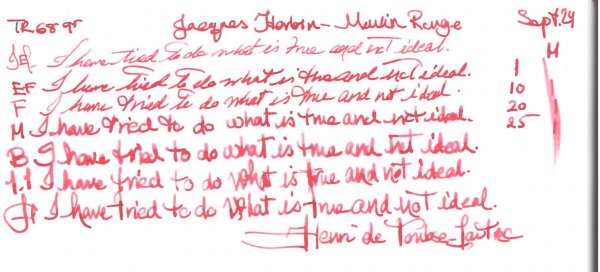 TR 68 gr Jacques Herbin - Moulin Rouge Sept. 24
I have tried to do what is true and not ideal. M
EF I have tried to do what is true and not ideal. 1
F I have tried to do what is true and not ideal. 10
20
M I have tried to do what is true and not ideal. 25
B I have tried to do what is true and not ideal.
1.1 I have tried to do what is true and not ideal.
I have tried to do what is true and not ideal.
Henri de Toulouse-Lautrec